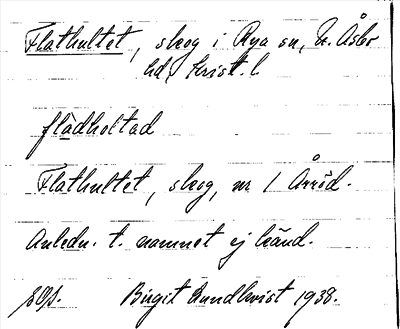 Flathultet, skog i Rya sn, N. Åsbo
hd, Krist. l.
flàdholtad
Flathultet, skog, nr 1 Årröd.
Anledn. t. namnet ej känd.
Birgit Rundkvist 1938.